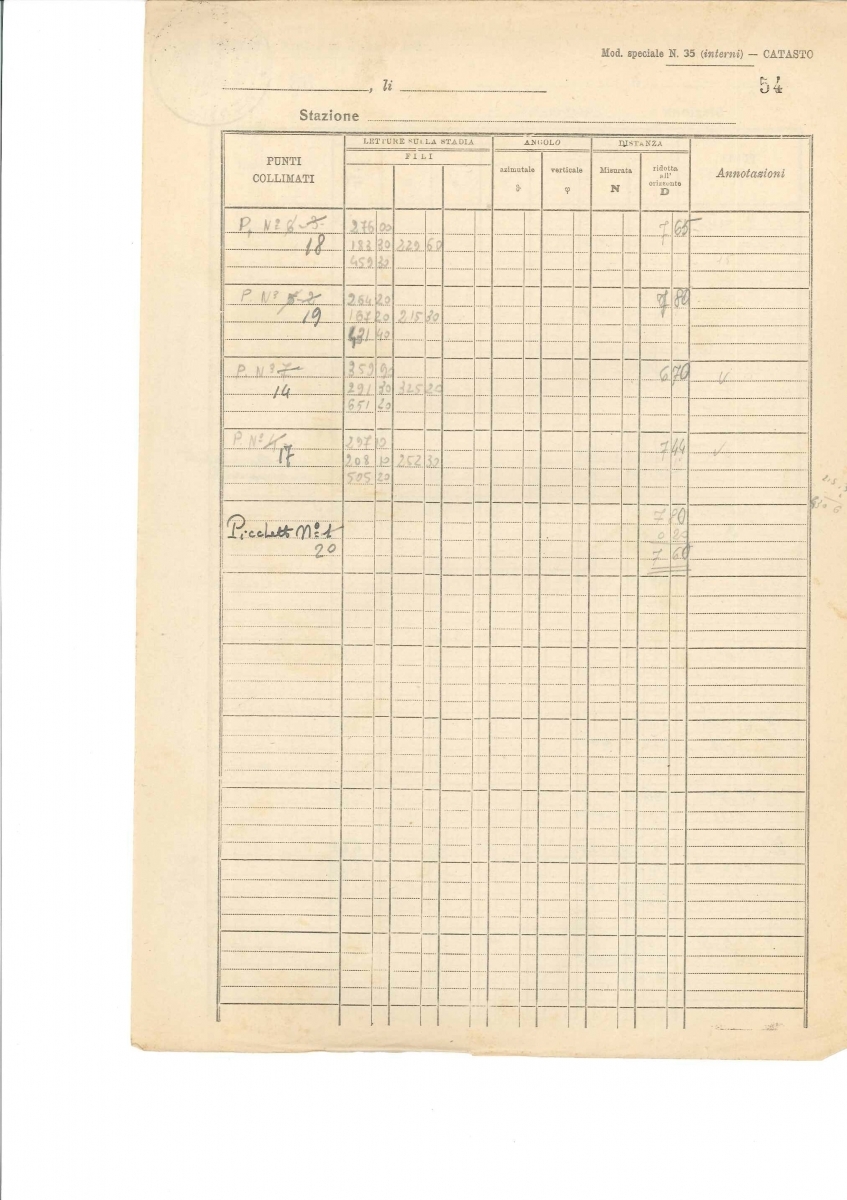 Mod. speciale N. 35 (interni) — CATASTO
, li
54
Stazione
PUNTI COLLIMATI
LETTURE SULLA STADIA
FILI
ANGOLO
azimutale
verticale φ
DISTANZA
Misurata N
ridotta all' orizzonte D
Annotazioni
276 00 7 65
18 183 30 229 60
459 30
264 20 7 80
19 167 20 215 30
431 40
P. Nº 7 359 90 6 70
14 291 30 325 20
651 20
P. Nº 4 297 10 7 44
17 208 10 252 30
505 20
7 80
Picchetto Nº 1 0 20
20 7 60